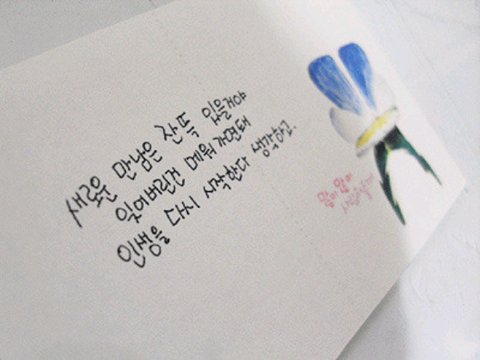 새로운 만남은 잔뜩 있을거야
잊어버린건 메워가면돼
인생을 다시 시작한다 생각하고.
많이많이